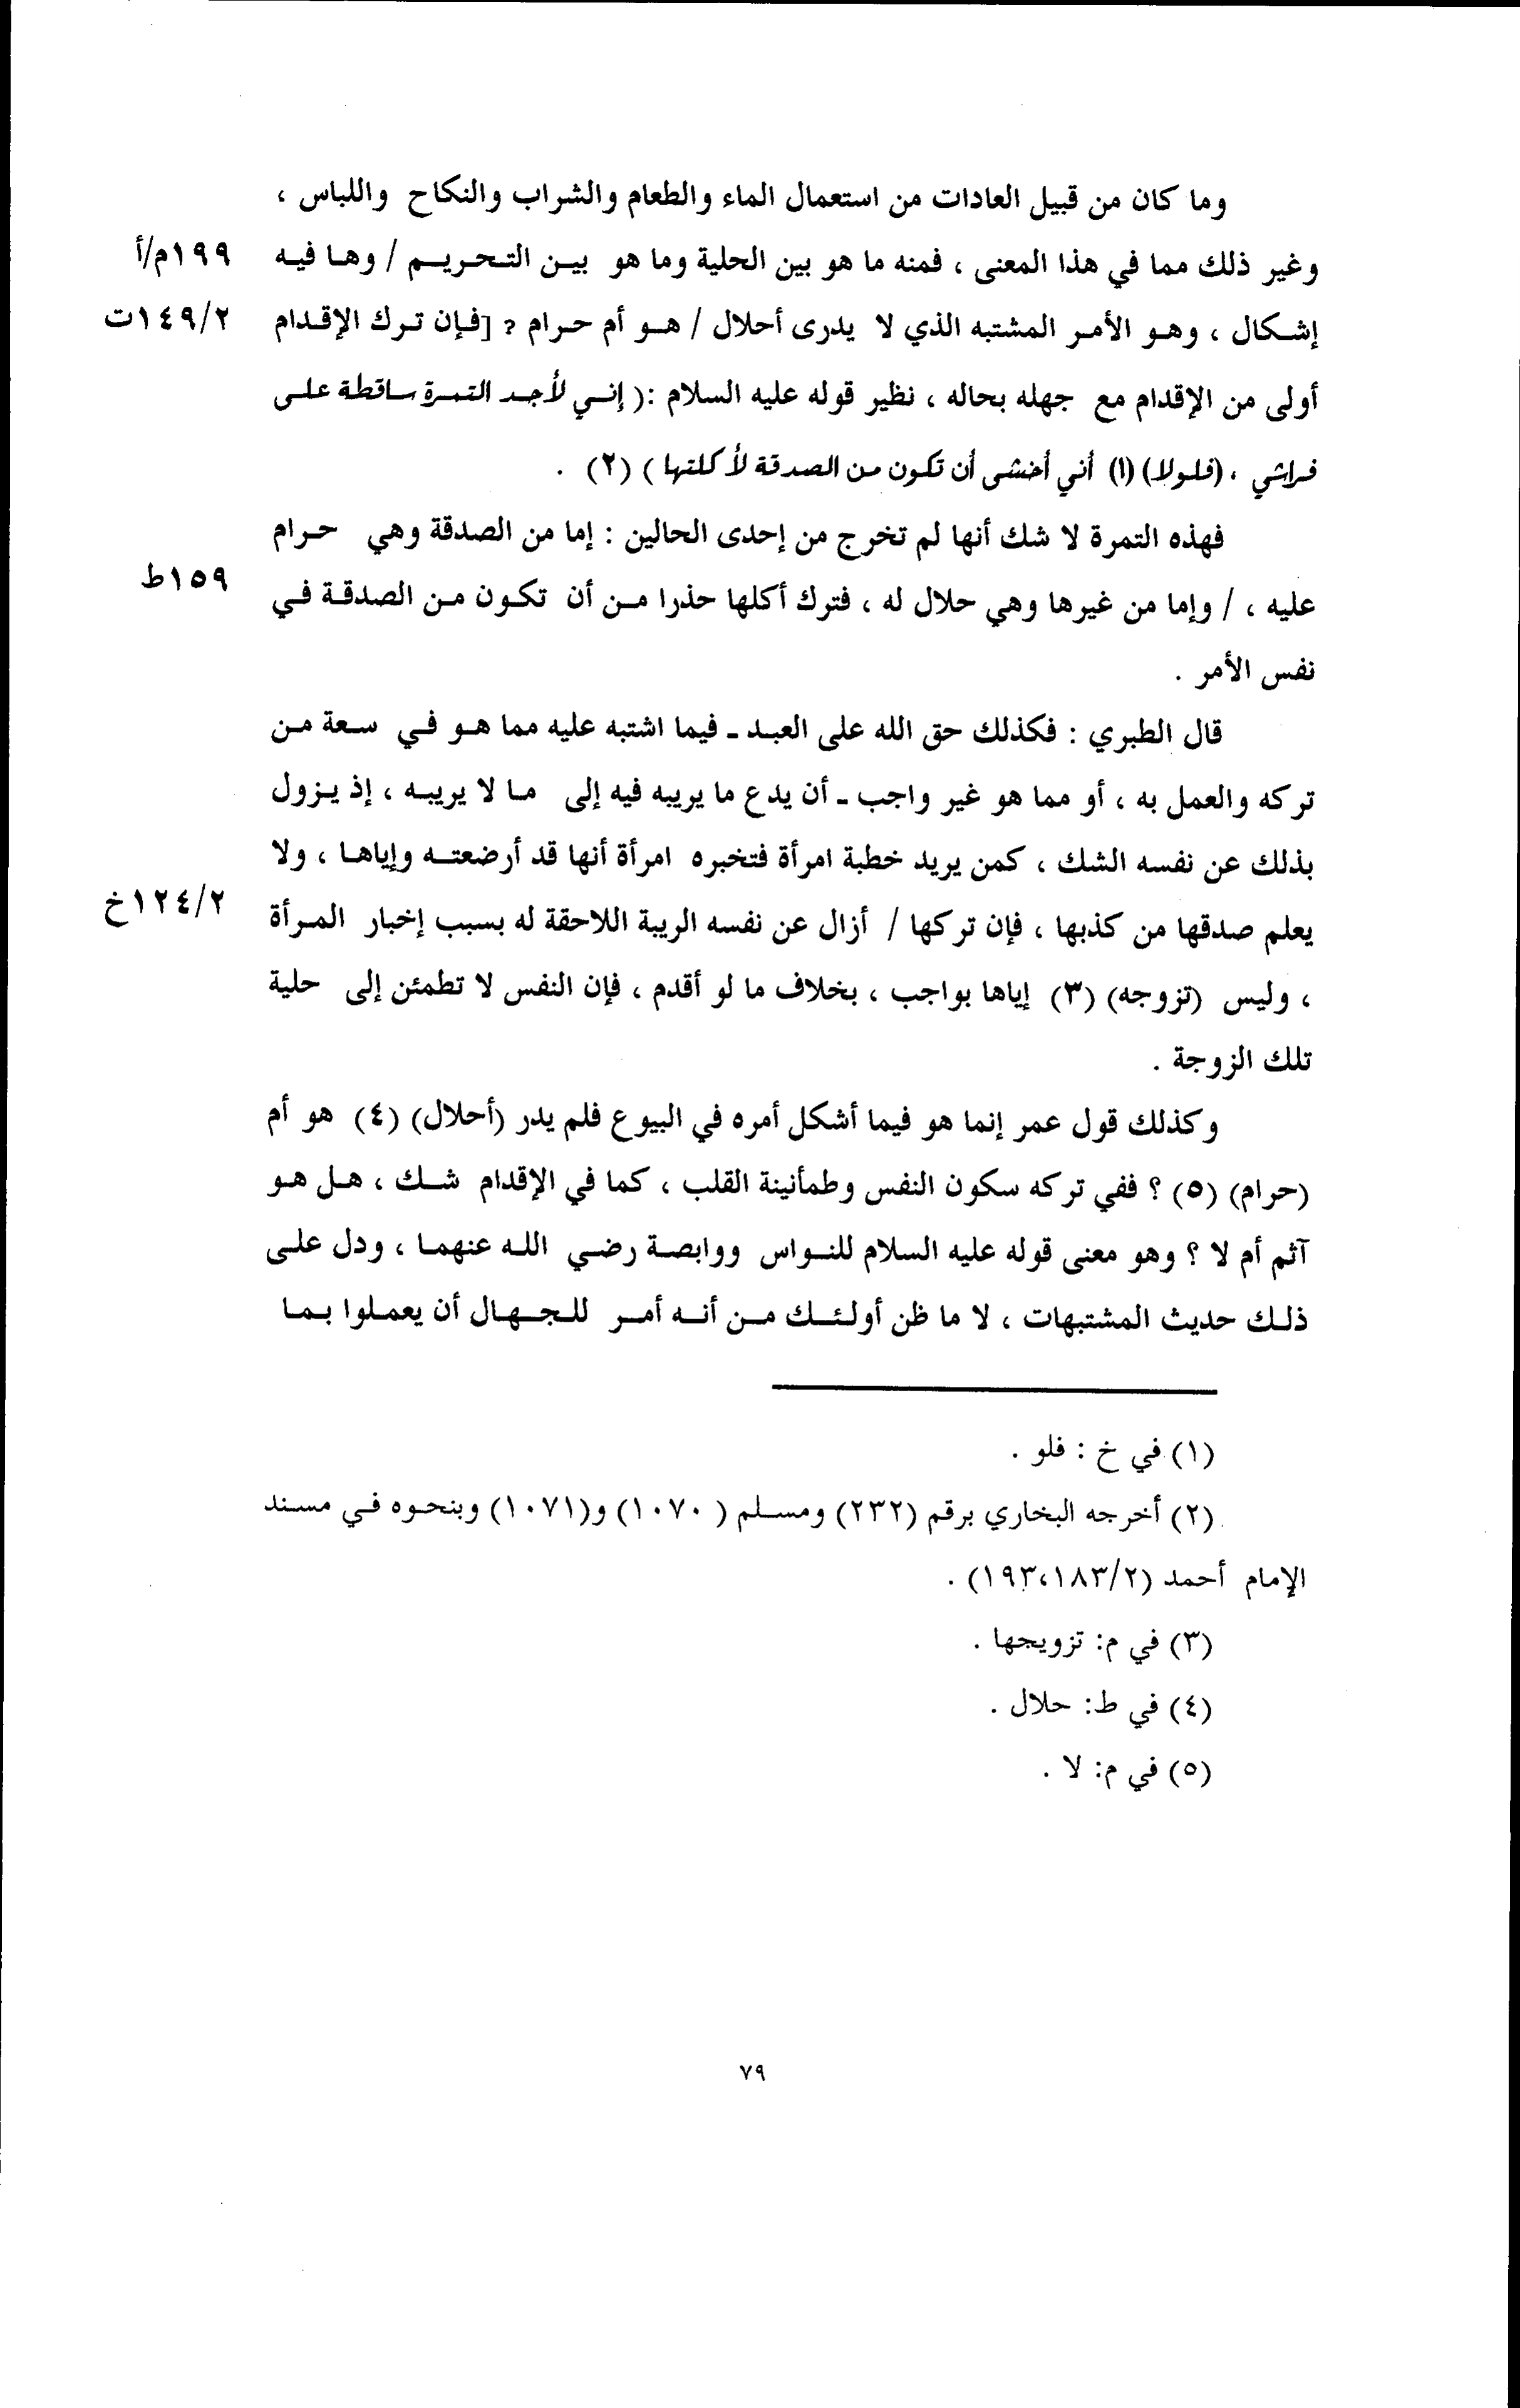 وما كان من قبيل العادات من استعمال الماء والطعام والشراب والنكاح واللباس ،
وغير ذلك مما في هذا المعنى ، فمنه ما هو بين الحلية وما هو بين التحريم / وها فيه ١٩٩م/أ
إشكال ، وهو الأمر المشتبه الذي لا يدرى أحلال / هو أم حرام ? [فإن ترك الإقدام ١٤٩/٢ت
أولى من الإقدام مع جهله بحاله ، نظير قوله عليه السلام :( إني لأجد التمرة ساقطة على
فراشي ، (فلولا) (١) أني أخشى أن تكون من الصدقة لأكلتها ) (٢) .
فهذه التمرة لا شك أنها لم تخرج من إحدى الحالين : إما من الصدقة وهي حرام
عليه ، / وإما من غيرها وهي حلال له ، فترك أكلها حذرا من أن تكون من الصدقة في ١٥٩ط
نفس الأمر .
قال الطبري : فكذلك حق الله على العبد ـ فيما اشتبه عليه مما هو في سعة من
تركه والعمل به ، أو مما هو غير واجب ـ أن يدع ما يريبه فيه إلى ما لا يريبه ، إذ يزول
بذلك عن نفسه الشك ، كمن يريد خطبة امرأة فتخبره امرأة أنها قد أرضعته وإياها ، ولا
يعلم صدقها من كذبها ، فإن تركها / أزال عن نفسه الريبة اللاحقة له بسبب إخبار المرأة ١٢٤/٢خ
، وليس (تزوجه) (٣) إياها بواجب ، بخلاف ما لو أقدم ، فإن النفس لا تطمئن إلى حلية
تلك الزوجة .
وكذلك قول عمر إنما هو فيما أشكل أمره في البيوع فلم يدر (أحلال) (٤) هو أم
(حرام) (٥) ؟ ففي تركه سكون النفس وطمأنينة القلب ، كما في الإقدام شك ، هل هو
آثم أم لا ؟ وهو معنى قوله عليه السلام للنواس ووابصة رضي الله عنهما ، ودل على
ذلك حديث المشتبهات ، لا ما ظن أولئك من أنه أمر للجهال أن يعملوا بما
(١) في خ : فلو .
(٢) أخرجه البخاري برقم (٢٣٢) ومسلم ( ١٠٧٠) و(١٠٧١) وبنحوه في مسند
الإمام أحمد (١٩٣،١٨٣/٢) .
(٣) في م: تزويجها .
(٤) في ط: حلال .
(٥) في م: لا .
٧٩